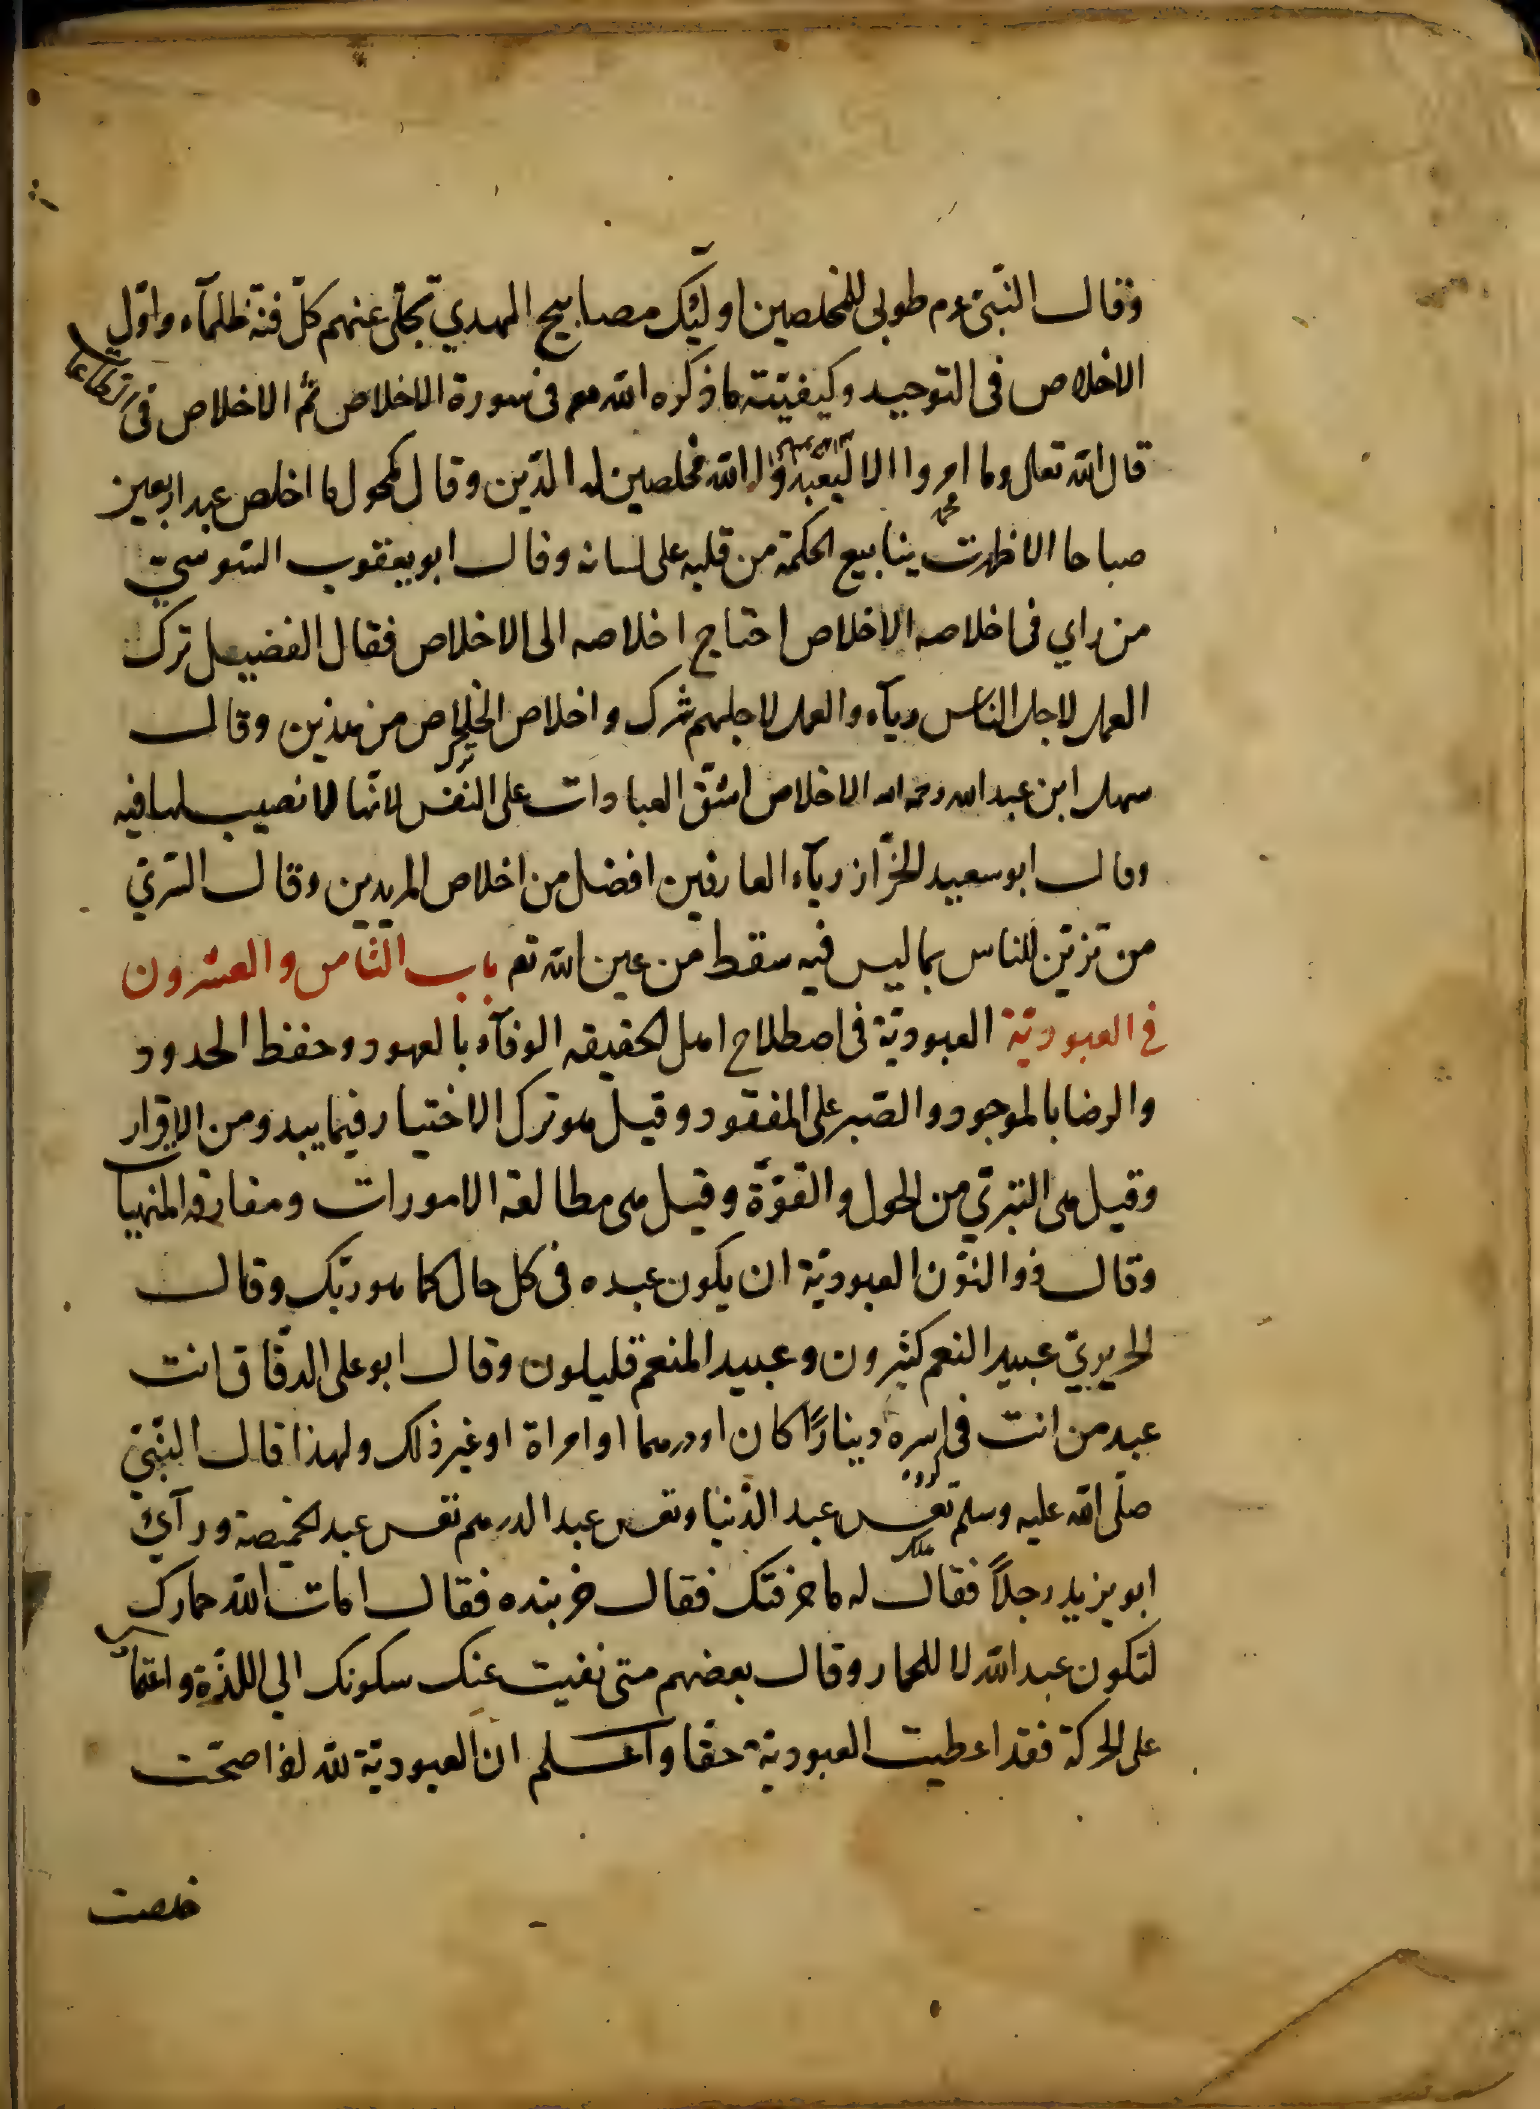 وقال النبى عم طوبى للمخلصين اوليك مصابيح الهدي تجلى عنهم كل فتنة ظلمآء واول
الاخلاص فى التوحيد وكيفيته ما ذكره الله تعم فى سورة الاخلاص ثم الاخلاص فى الطاعات
قال الله تعالى وما امروا الا ليعبدوا الله مخلصين له الدين وقال مكحول ما اخلص عبد اربعين
صباحا الا ظهرت ينابيع الحكمة من قلبه على لسانه وقال ابو يعقوب السوسي
من راي فى اخلاصه الاخلاص احتاج اخلاصه الى الاخلاص فقال الفضيل ترك
العمل لاجل الناس ريآء والعمل لاجلهم شرك واخلاص الخلاص من هذين وقال
سهل ابن عبد الله رحمه الله الاخلاص اشق العبادات على النفس لانها لا نصيب لها فيه
وقال ابو سعيد الخراز ريآء العارفين افضل من اخلاص المريدين وقال السري
من تزين للناس بما ليس فيه سقط من عين الله تعم باب الثامن والعشرون
في العبودية العبودية فى اصطلاح اهل الحقيقه الوفآء بالعهود وحفظ الحدود
والرضا بالموجود والصبر على المفقود وقيل هو ترك الاختيار فيما يبدو من الاقرار
وقيل هى التبري من الحول والقوة وقيل هى مطالعة الامورات ومفارقه المنهيات
وقال ذو النون العبودية ان يكون عبده فى كل حال كما هو ربك وقال
الحريري عبيد النعم كثيرون وعبيد المنعم قليلون وقال ابو على الدقاق انت
عبد من انت فى اسره دينارًا كان او درهما او امراة او غير ذلك ولهذا قال النبى
صلى الله عليه وسلم تعس عبد الدنيا وتعس عبد الدرهم تعس عبد الخميصة ورآئ
ابو يزيد رجلاً فقال له ما حرفتك فقال خربنده فقال امات الله حمارك
لتكون عبد الله لا للحمار وقال بعضهم متى نفيت عنك سكونك الي اللذة واعتمادك
على الحركة فقد اعطيت العبودية حقها واعلم ان العبودية لله اذا صحت
خلصت